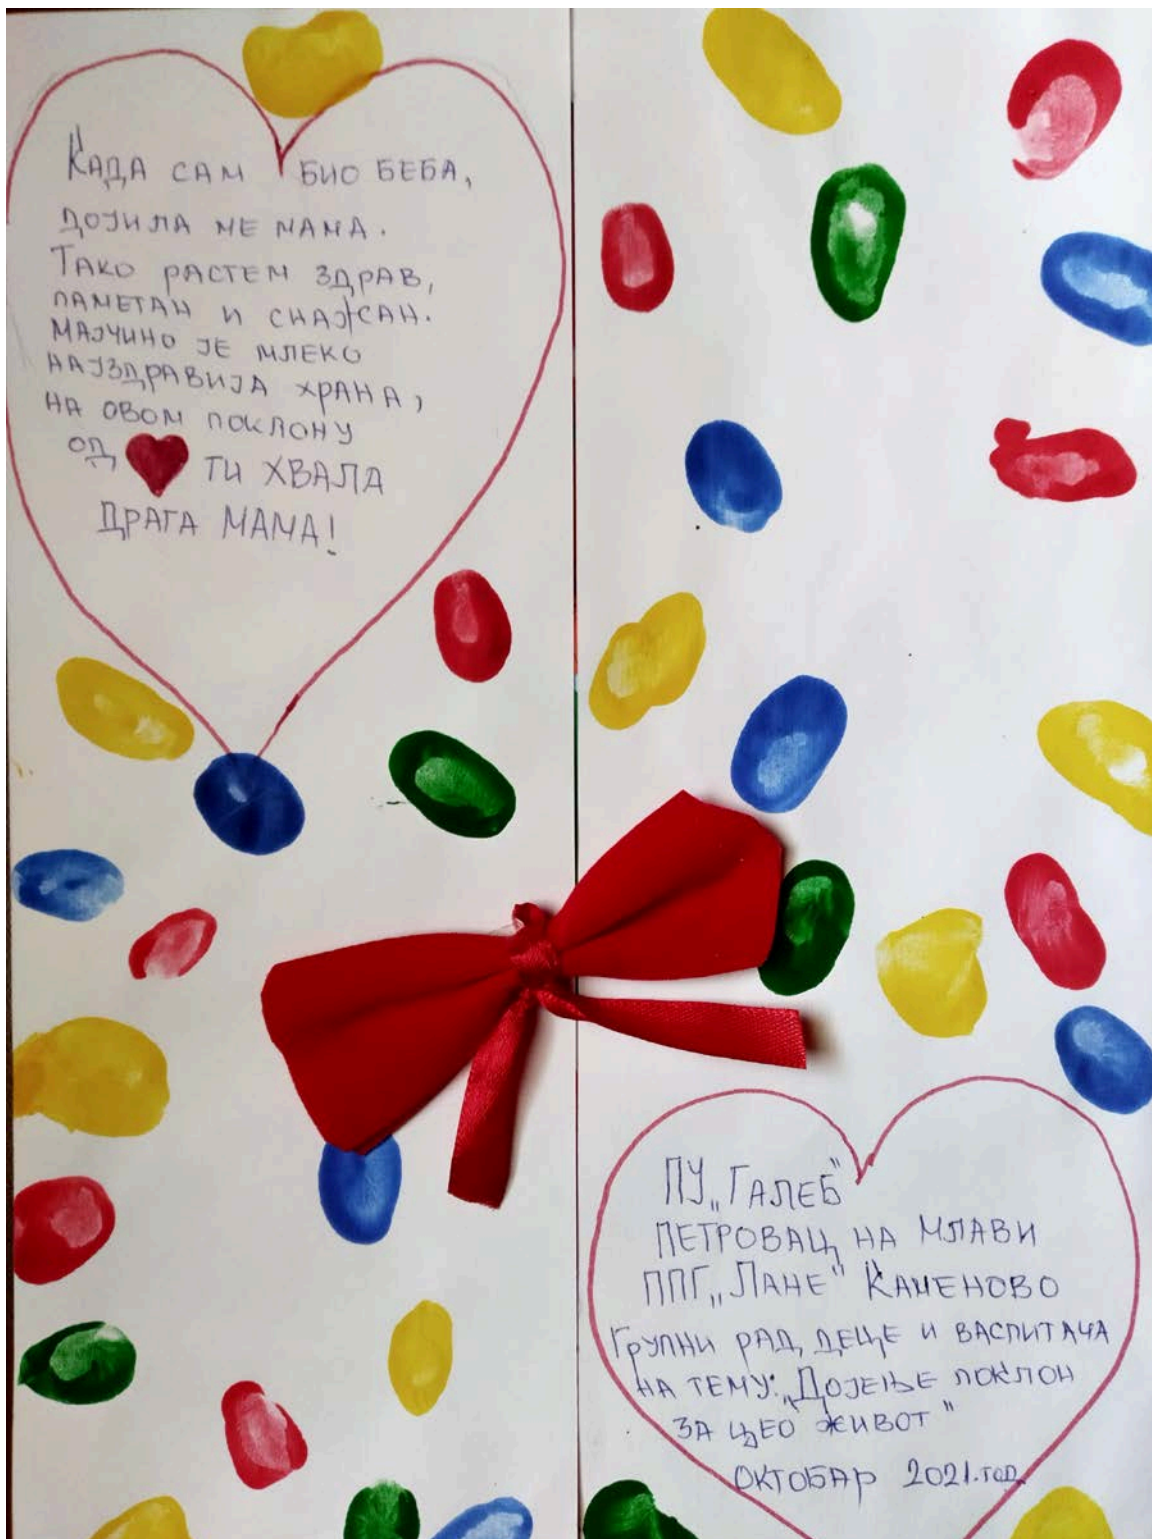 КАДА САМ БИО БЕБА,
ДОЈИЛА МЕ МАМА.
ТАКО РАСТЕМ ЗДРАВ,
ПАМЕТАН И СНАЖАН.
МАЈЧИНО ЈЕ МЛЕКО
НАЈЗДРАВИЈА ХРАНА,
НА ОВОМ ПОКЛОНУ
ОД ❤ ТИ ХВАЛА
ДРАГА МАМА!
ПУ „ГАЛЕБ"
ПЕТРОВАЦ НА МЛАВИ
ППГ „ЛАНЕ" КАМЕНОВО
ГРУПНИ РАД ДЕЦЕ И ВАСПИТАЧА
НА ТЕМУ: „ДОЈЕЊЕ ПОКЛОН
ЗА ЦЕО ЖИВОТ"
ОКТОБАР 2021.год.